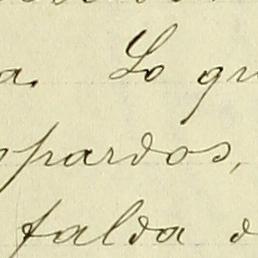 a. Lo qu
spardos,
falda d